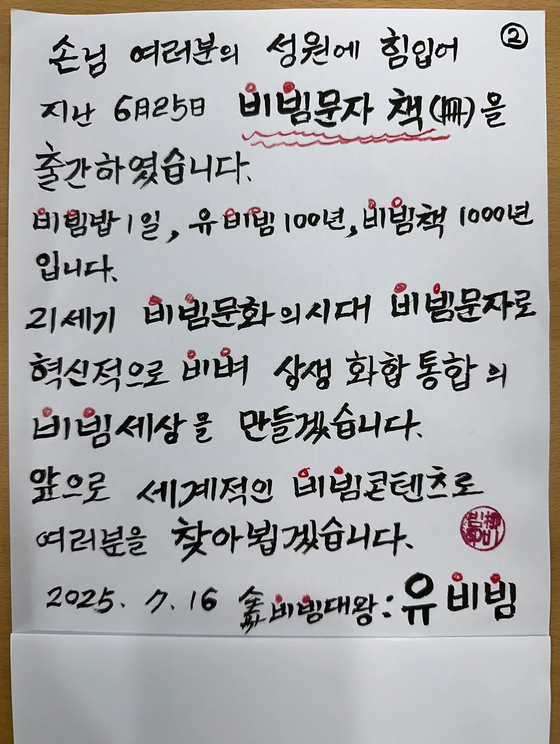 ②
손님 여러분의 성원에 힘입어
지난 6月25日 비빔문자 책(冊)을
출간하였습니다.
비빔밥 1일, 유비빔 100년, 비빔책 1000년
입니다.
21세기 비빔문화의시대 비빔문자로
혁신적으로 비벼 상생 화합 통합의
비빔세상을 만들겠습니다.
앞으로 세계적인 비빔콘텐츠로
여러분을 찾아뵙겠습니다.
2025. 7. 16 비빔대왕: 유비빔